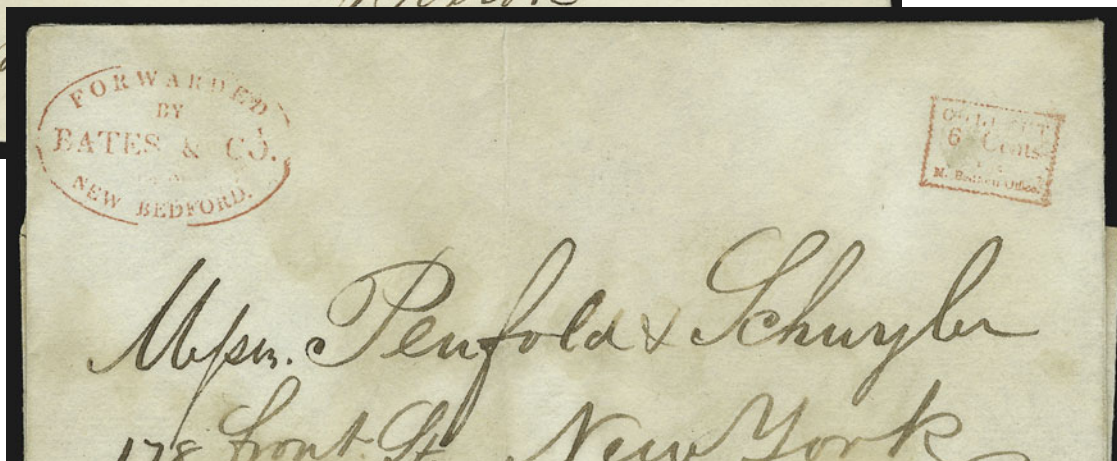 FORWARDED
BY
BATES & CO.
NEW BEDFORD.
COLLECT
6 Cents
N. Bedford Office.
Messrs. Penfold & Schuyler
178 Front St. New York